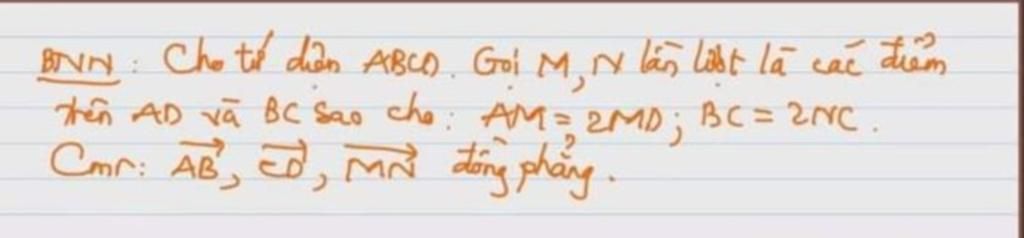 BTNN: Cho tứ diện ABCD. Gọi M, N lần lượt là các điểm
trên AD và BC sao cho: AM = 2MD; BC = 2NC.
Cmr: AB, CD, MN đồng phẳng.